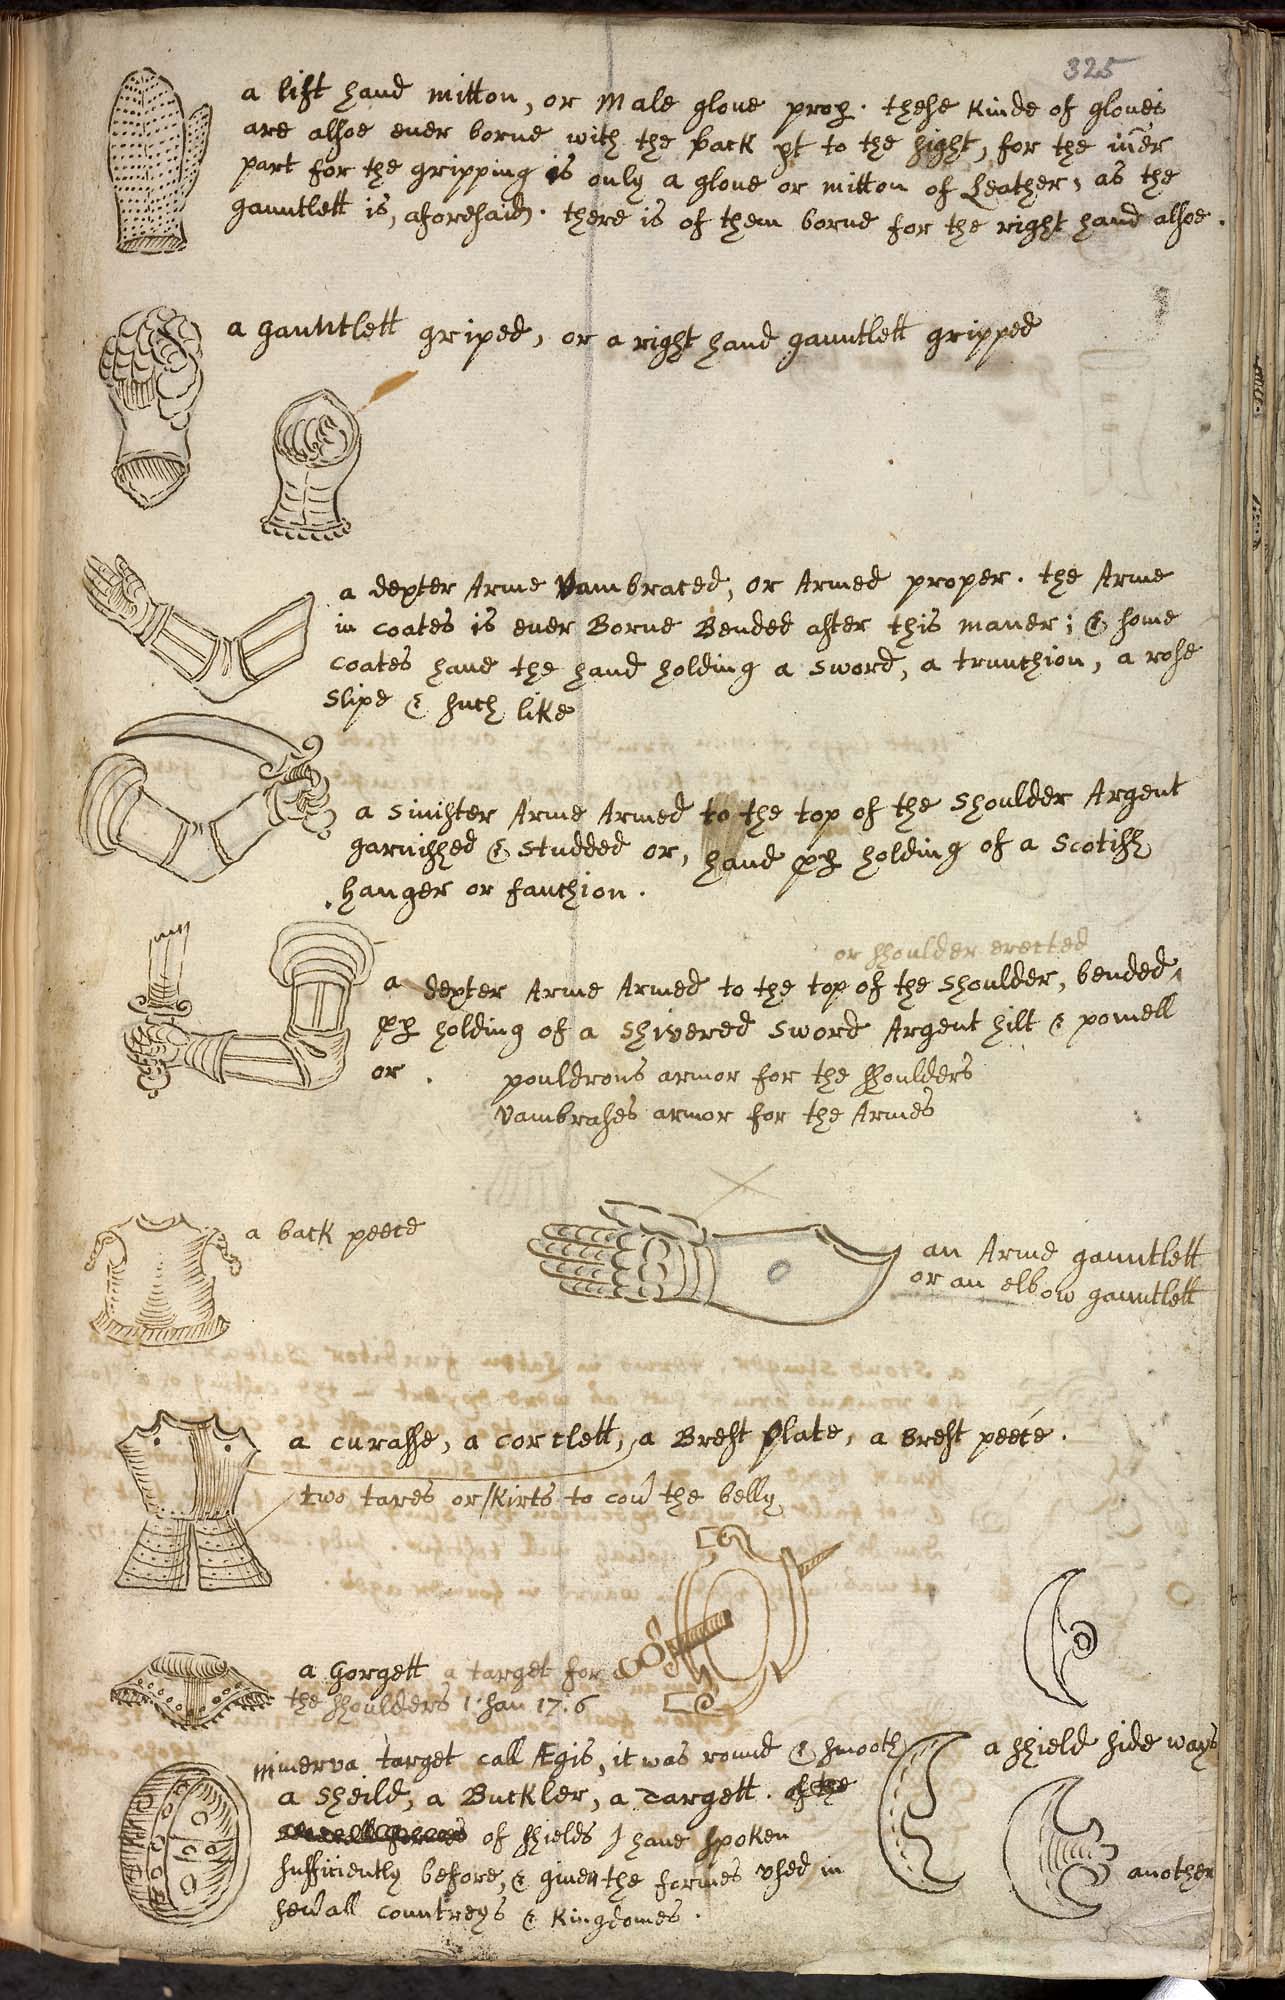 325
a lift hand mitton, or Male glove prop. these kinde of gloves
are alsoe ever borne with the back pt to the sight, for the iner
part for the gripping is only a glove or mitton of Leather, as the
gauntlett is, aforesaid. there is of them borne for the right hand alsoe.
a gauntlett griped, or a right hand gauntlett gripped
a dexter Arme Vambraced, or Armed proper. the Arme
in coates is ever Borne Bended after this maner; & some
coates have the hand holding a sword, a trunchion, a rose
slipe & such like
a sinister Arme Armed to the top of the shoulder Argent
garnished & studded or, hand pp holding of a Scotish
Hanger or fauchion.
or shoulder erected
a dexter Arme Armed to the top of the shoulder, bended,
pp holding of a shivered sword Argent hilt & pomell
or.
pouldrons armor for the shoulders
Vambrases armor for the Armes
a back peece
an Arme gauntlett
or an elbow gauntlett
a curasse, a corclett, a Brest plate, a Brest peece.
two tases or skirts to cou the belly
a Gorgett a target for
the shoulders 1 San 17.6
a shield side ways
minerva target call Ægis, it was round & smooth
a sheild, a Buckler, a Targett. of the
of shields I have spoken
sufficiently before, & given the formes used in
seuall countreys & kingdomes.
another